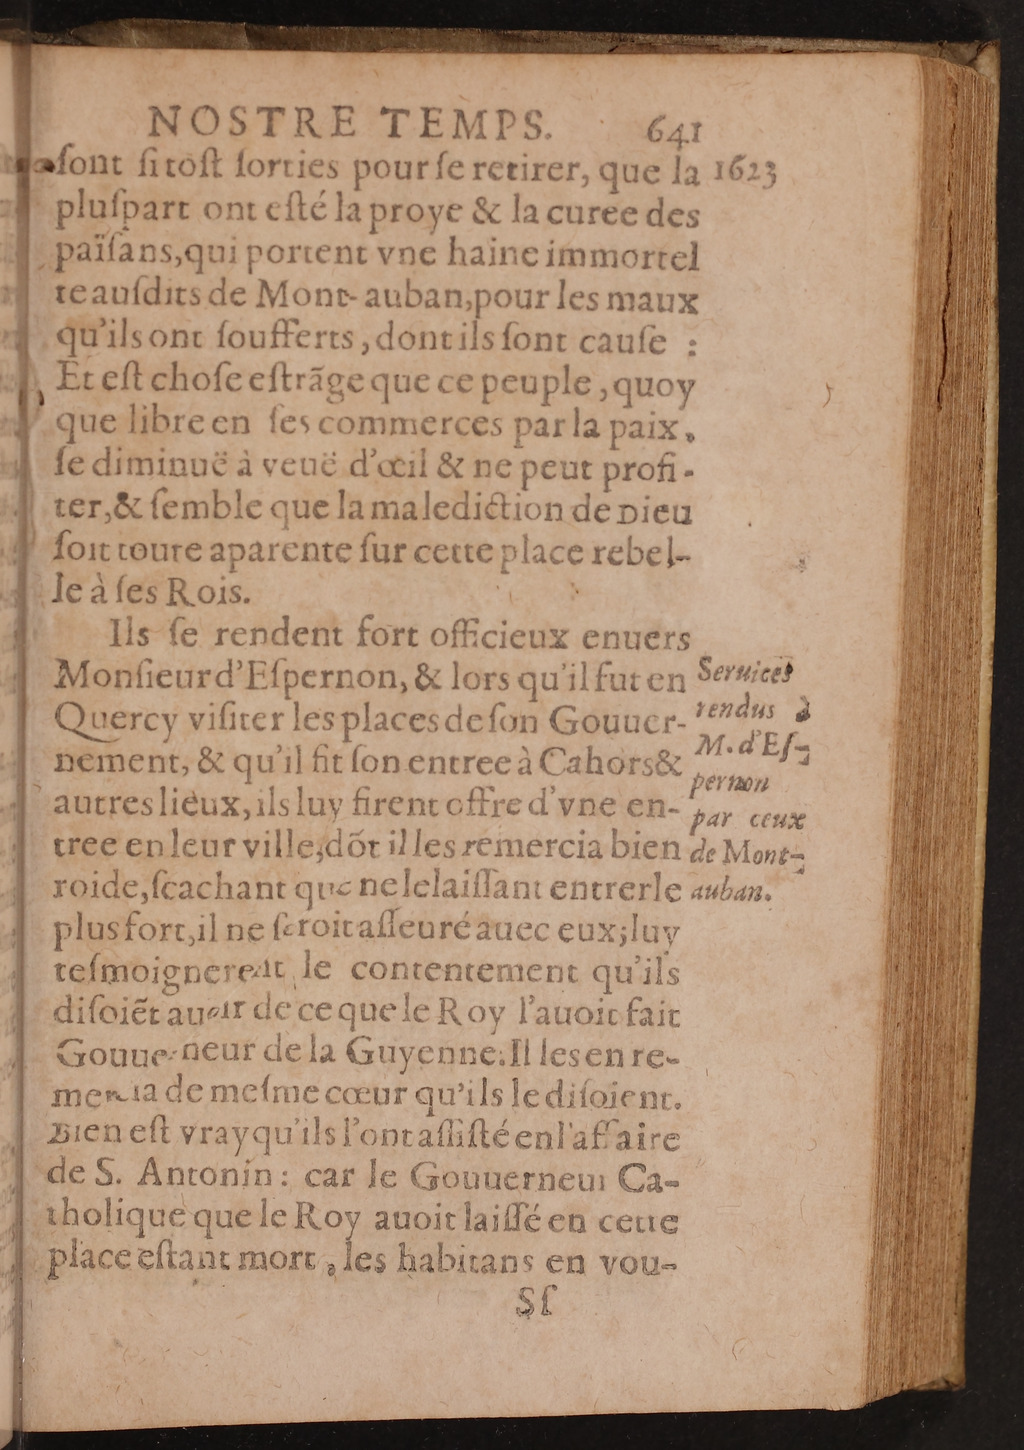 NOSTRE TEMPS. 641
ſont ſi toſt ſorties pour ſe retirer, que la 1623
pluſpart ont eſté la proye & la curee des
païſans, qui portent vne haine immortel
te auſdits de Mont-auban, pour les maux
qu'ils ont ſoufferts, dont ils ſont cauſe :
Et eſt choſe eſtrãge que ce peuple, quoy
que libre en ſes commerces par la paix,
ſe diminuë à veuë d'œil & ne peut profi-
ter, & ſemble que la malediction de Dieu
ſoit toute aparente ſur cette place rebel-
le à ſes Rois.
Ils ſe rendent fort officieux enuers
Monſieur d'Eſpernon, & lors qu'il fut en
Quercy viſiter les places de ſon Gouuer-
nement, & qu'il fit ſon entree à Cahors &
autres lieux, ils luy firent offre d'vne en-
tree en leur ville; dõt il les remercia bien
roide, ſcachant que ne le laiſſant entrer le
plus fort, il ne ſeroit aſſeuré auec eux; luy
teſmoignerent le contentement qu'ils
diſoiẽt auoir de ce que le Roy l'auoit fait
Gouuerneur de la Guyenne: Il les en re-
mercia de meſme cœur qu'ils le diſoient.
Bien eſt vray qu'ils l'ont aſſiſté en l'affaire
de S. Antonin : car le Gouuerneur Ca-
tholique que le Roy auoit laiſſé en cette
place eſtant mort, les habitans en vou-
Sſ
Seruices
rendus à
M. d'Eſ-
pernon
par ceux
de Mont-
auban.